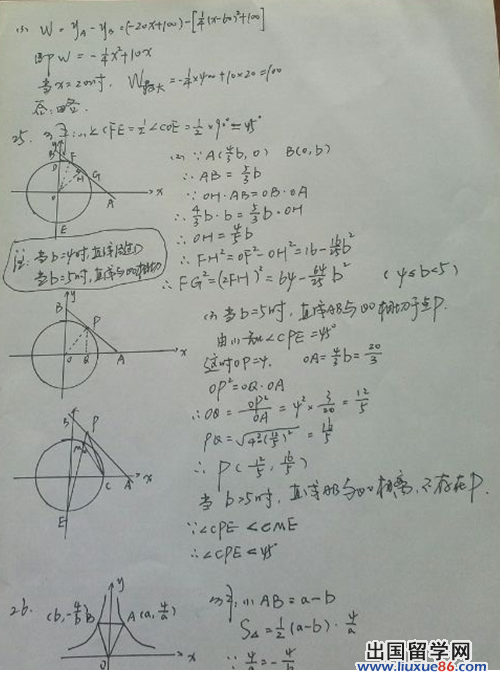 (3) W = yA - yB = (-20x+100) - [¼(x-60)²+100]
即 W = -¼x²+10x
当x=20时, W最大 = -¼×400+10×20=100
答:略.
25. ∠CFE=½∠COE=½×90°=45°
(2) ∵ A(4/3 b, 0) B(0, b)
∴ AB = 5/3 b
∵ OH·AB=OB·OA
∴ 4/3 b·b = 5/3 b·OH
∴ OH = 4/5 b
∴ FH²=OF²-OH²=16-16/25 b²
∴ FG²=(2FH)²=64-64/25 b² (4≤b<5)
注: 当b=4时,直线过D
当b=5时,直线与⊙O相切
(3) 当b=5时,直线AB与⊙O相切于点P.
由(1)知∠CPE=45°
这时OP=4. OA=4/3 b=20/3
OP²=OQ·OA
∴ OQ = OP²/OA = 4²×3/20 = 12/5
PQ=√4²-(12/5)² = 16/5
∴ P(12/5, 16/5)
当b>5时,直线AB与⊙O相离,不存在P.
∵ ∠CPE<∠CME
∴ ∠CPE<45°
26.
(b, -4/b) B A(a, 4/a)
(1) AB=a-b
S△=½(a-b)·4/a
∵ 4/a = -4/b
y
B
F
D
H
G
O
A
x
E
y
B
P
O
Q
A
x
B
P
M
C
A
x
E
y
O
x
出国留学网
www.liuxue86.com